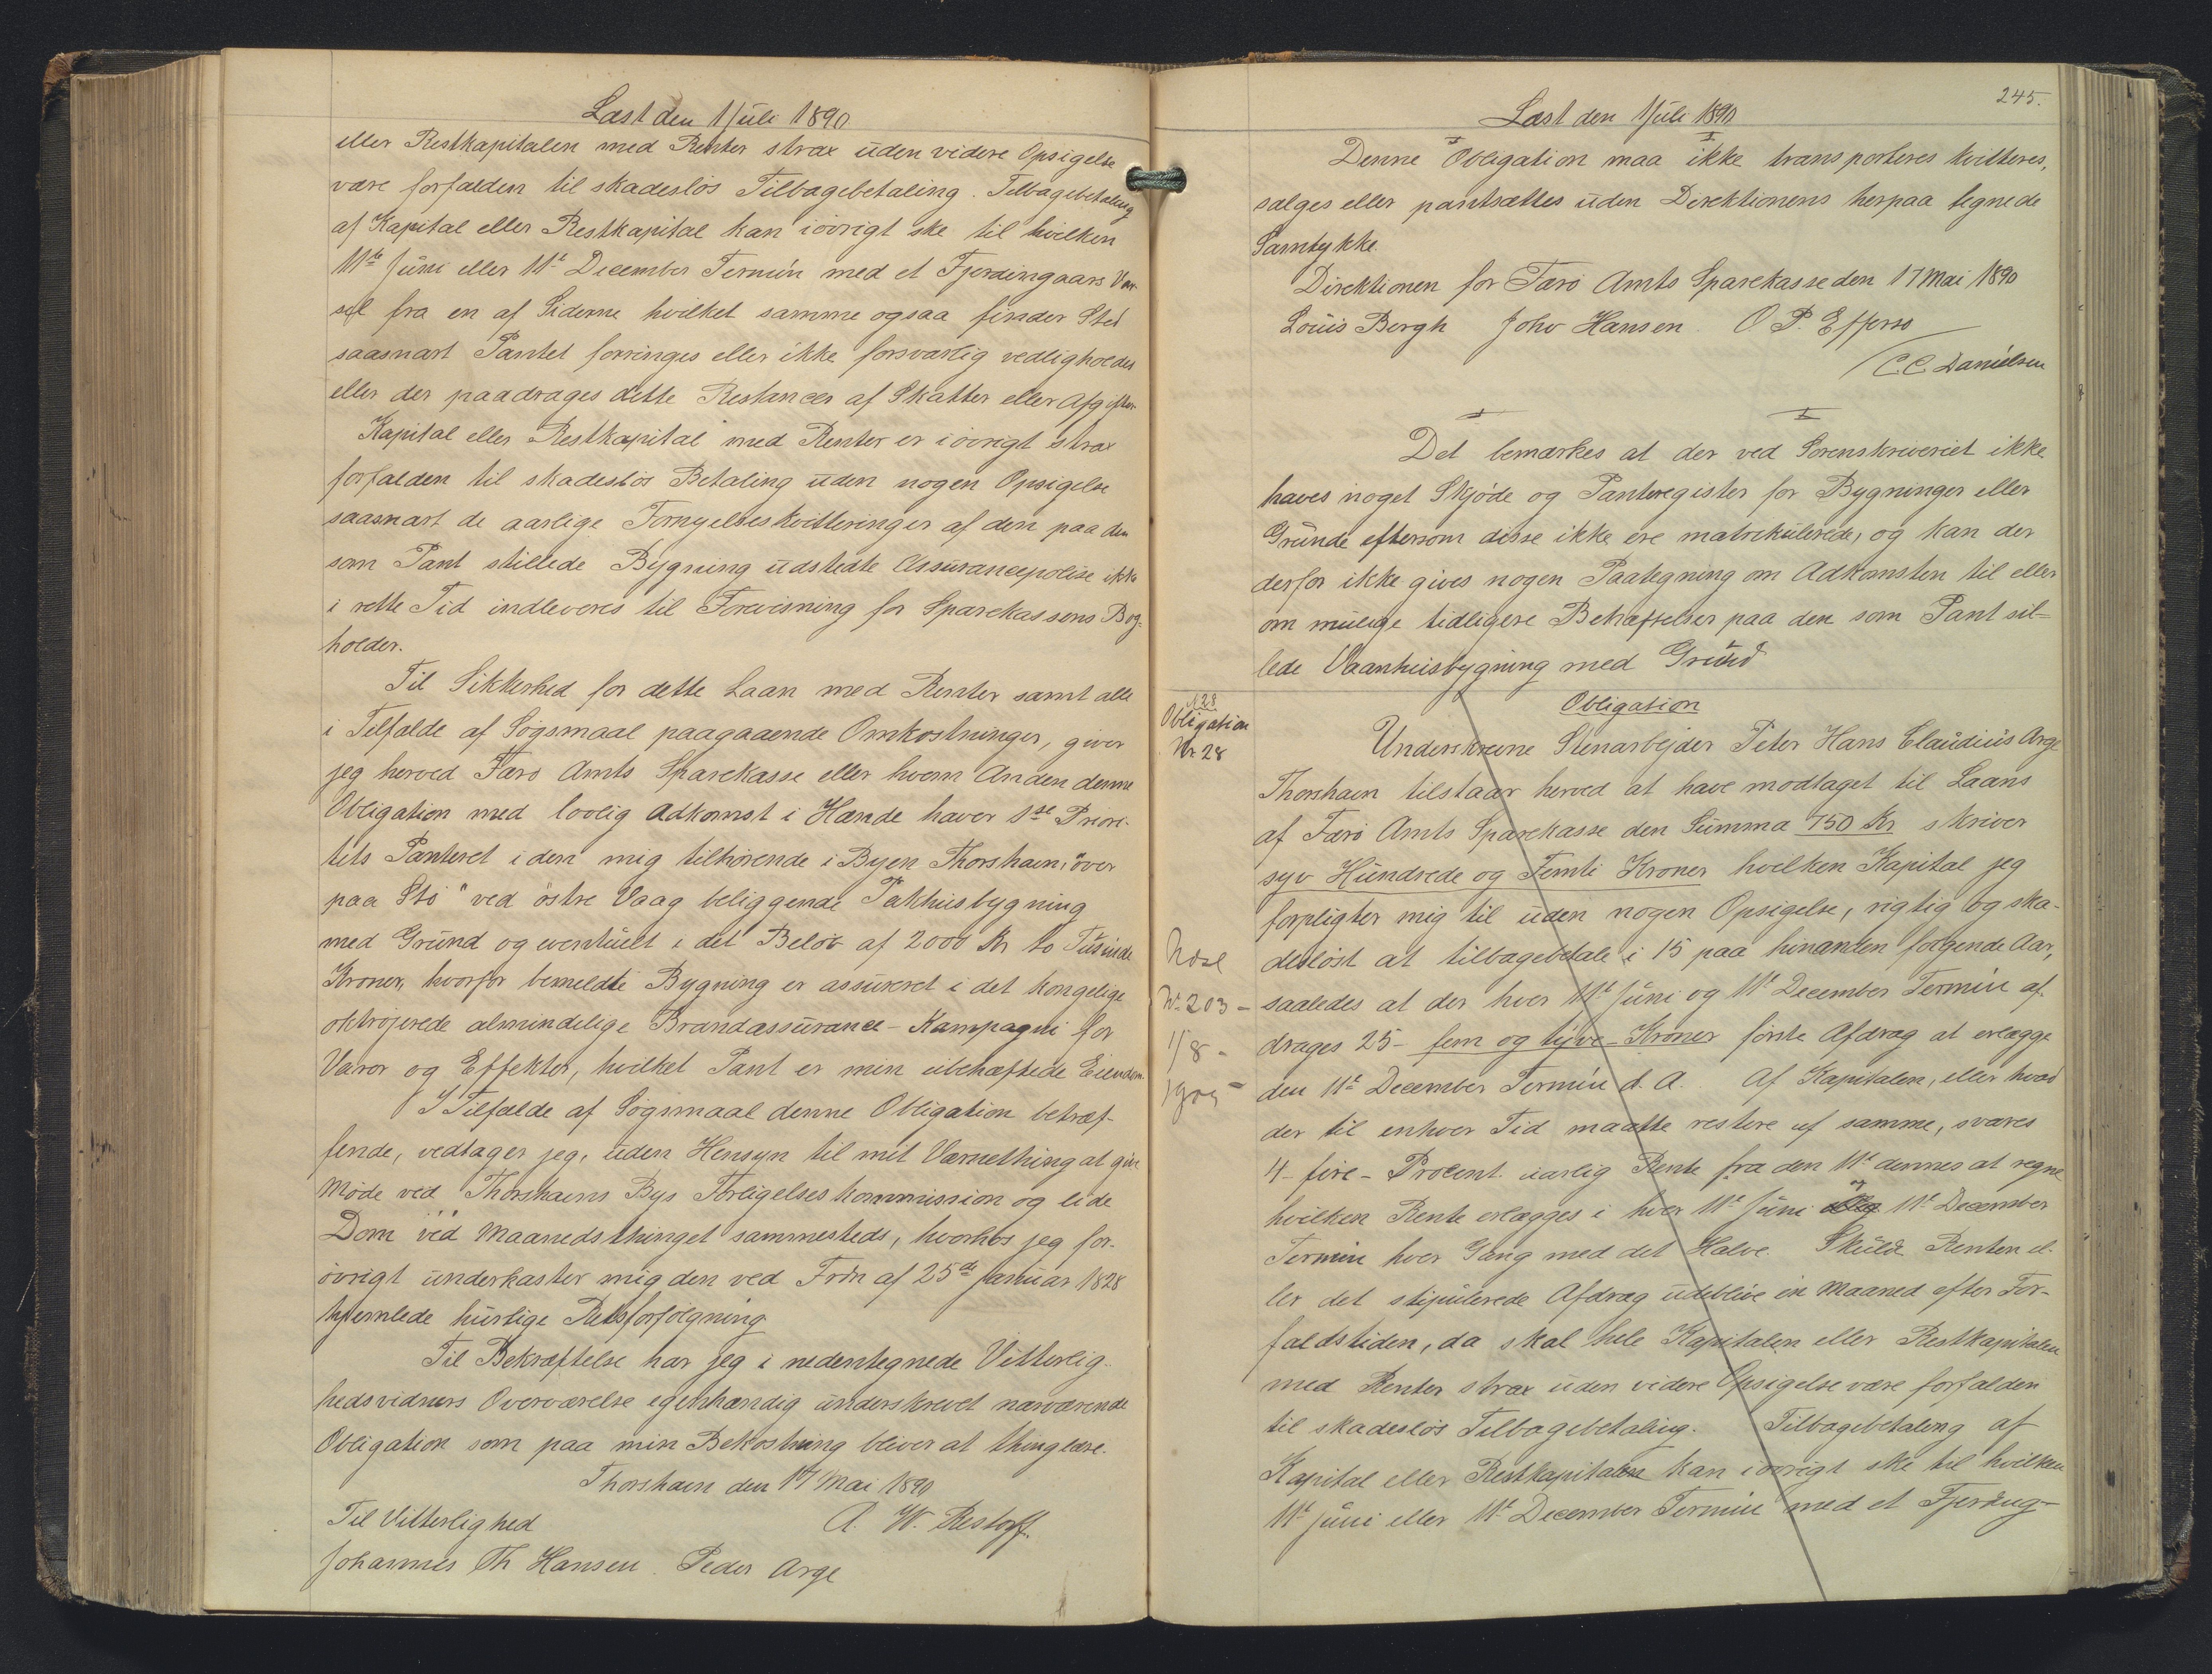 Læst den 1 Juli 1890
eller Restkapitalen med Renter strax uden videre Opsigelse
være forfalden til skadesløs Tilbagebetaling. Tilbagebetaling
af Kapital eller Restkapital kan iövrigt ske til hvilken
11te Juni eller 11te December Termin med et Fjerdingaars Var-
sel fra en af Siderne hvilket samme ogsaa finder Sted
saasnart Pantet forringes eller ikke forsvarlig vedligholdes
eller der paadrages dette Restancer af Skatter eller Afgifter.
Kapital eller Restkapital med Renter er iövrigt strax
forfalden til skadeslös Betaling uden nogen Opsigelse
saasnart de aarlige Fornyelseskvitteringer af den paa den
som Pant stillede Bygning udstedte Assurancepolise ikke
i rette Tid indleveres til Forevisning for Sparekassens Bog-
holder.
Til Sikkerhed for dette Laan med Renter samt alle
i Tilfælde af Søgsmaal paagaaende Omkostninger, giver
jeg herved Færö Amts Sparekasse eller hvem Anden denne
Obligation med lovlig Adkomst i Hænde haver 1ste Priori-
tets Panteret i den mig tilhörende i Byen Thorshavn, "över
paa Stö" ved östre Vaag beliggende Pakhusbygning
med Grund og eventuelt i det Beløb af 2000 Kr to Tusinde
Kroner, hvorfor bemeldte Bygning er assureret i det kongelige
oktrojerede almindelige Brandassurance-Kampagni for
Varer og Effekter, hvilket Pant er min ubehæftede Eiendom.
I Tilfælde af Søgsmaal denne Obligation betræf-
fende, vedtager jeg, uden Hensyn til mit Værnething at give
Møde ved Thorshavns Bys Forligelseskommission og lide
Dom ved Maanedsthinget sammesteds, hvorhos jeg for-
övrigt underkaster mig den ved Frdn af 25de Januar 1828
hjemlede hurtige Retsforfölgning
Til Bekræftelse har jeg i nedentegnede Vitterlig-
hedsvidners Overværelse egenhændig underskrevet nærværende
Obligation som paa min Bekostning bliver at thinglæse.
Thorshavn den 17 Mai 1890
Til Vitterlighed A. W. Restorff.
Johannes Th Hansen. Peder Arge
245.
Læst den 1 Juli 1890
Denne Obligation maa ikke transporteres kvitteres,
sælges eller pantsættes uden Direktionens herpaa tegnede
Samtykke
Direktionen for Færö Amts Sparekasse den 17 Mai 1890
Louis Bergh Johv Hansen. O P. Effersö
C. C. Danielsen
Det bemærkes at der ved Sorenskriveriet ikke
haves noget Skjöde og Panteregister for Bygninger eller
Grunde eftersom disse ikke ere matrikulerede, og kan der
derfor ikke gives nogen Paategning om Adkomsten til eller
om mulige tidligere Behæftelser paa den som Pant stil-
lede Vaanhusbygning med Grund
N 28
Obligation
Nr 28
Obligation
Underskrevne Stenarbejder Peter Hans Claudius Arge
Thorshavn tilstaar herved at have modtaget til Laans
af Færö Amts Sparekasse den Summa 750 Kr skriver
syv Hundrede og Femti Kroner hvilken Kapital jeg
forpligter mig til uden nogen Opsigelse, rigtig og ska-
deslöst at tilbagebetale i 15 paa hinanden følgende Aar,
saaledes at der hver 11te Juni og 11te December Termin af-
drages 25 - fem og tyve - Kroner förste Afdrag at erlægge
den 11te December Termin d. A. Af Kapitalen, eller hvad
der til enhver Tid maatte restere af samme, svares
4 - fire - Procent aarlig Rente fra den 11te dennes at regne
hvilken Rente erlægges i hver 11te Juni og 11te December
Termin hver Gang med det Halve. Skulde Renten el-
ler det stipulerede Afdrag udeblive en Maaned efter For-
faldstiden, da skal hele Kapitalen eller Restkapitalen
med Renter strax uden videre Opsigelse være forfalden
til skadeslös Tilbagebetaling. Tilbagebetaling af
Kapital eller Restkapitalen kan iövrigt ske til hvilken
11te Juni eller 11te December Termin med et Fjerding-
Nr. 203 -
1/8 -